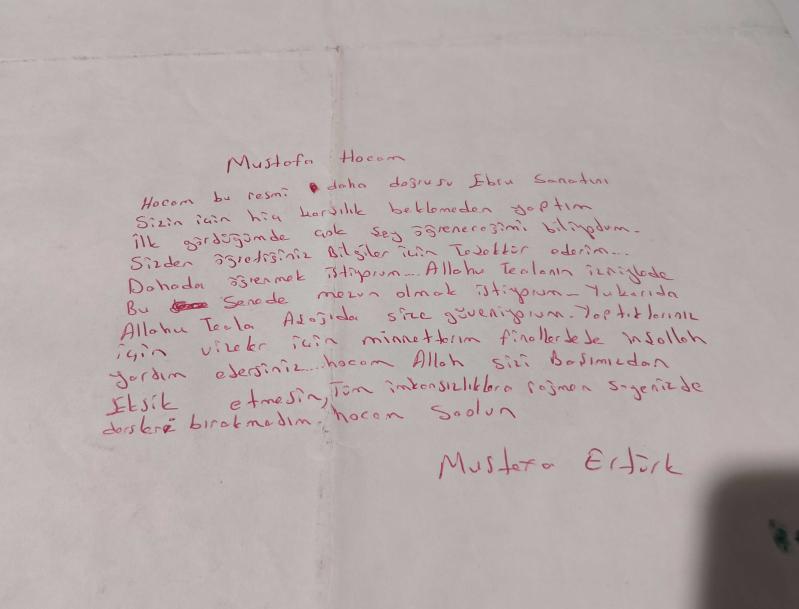 Mustafa Hocam
Hocam bu resmi daha doğrusu Ebru Sanatını
Sizin için hiç karşılık beklemeden yaptım
ilk gördüğümde çok şey öğreneceğimi biliyodum.
Sizden öğrettiğiniz Bilgiler için Teşekkür ederim...
Dahada öğrenmek istiyorum... Allahu Tealanın izniylede
Bu Senede mezun olmak istiyorum - Yukarıda
Allahu Teala Aşağıda size güveniyorum. Yaptıklarınız
için vizeler için minnettarım finallerdede inşallah
yardım edersiniz... hocam Allah sizi Başımızdan
Eksik etmesin, Tüm imkansızlıklara rağmen sayenizde
dersleri bırakmadım. hocam Saolun
Mustafa Ertürk